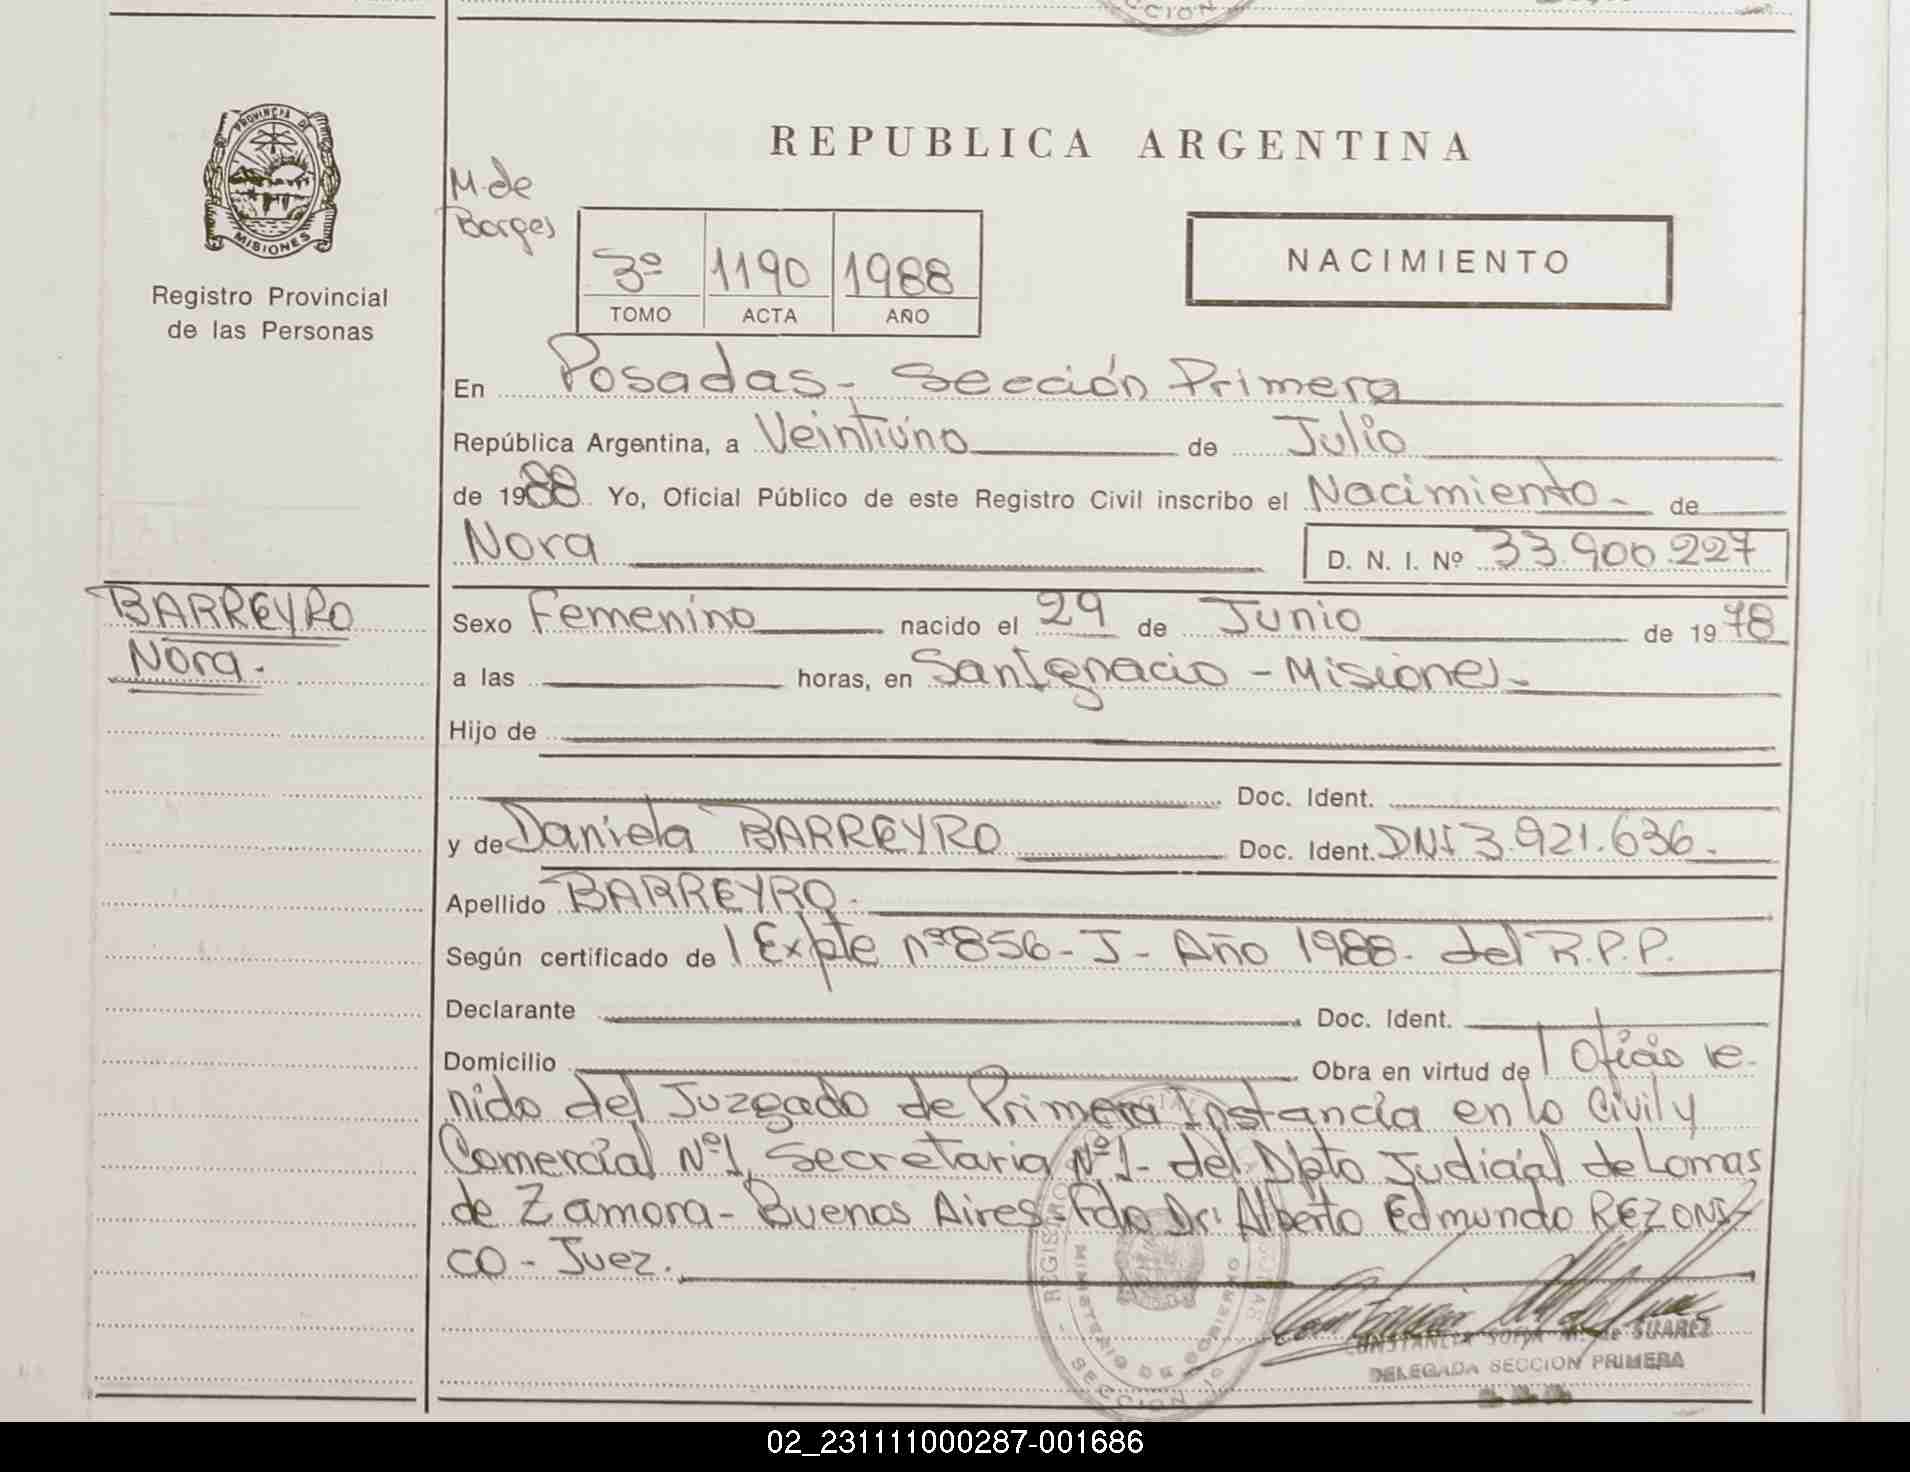 CCION
PROVINCIA DE
MISIONES
Registro Provincial
de las Personas
REPUBLICA ARGENTINA
M. de
Borges
3º 1190 1988
TOMO ACTA AÑO
NACIMIENTO
En Posadas - Sección Primera
República Argentina, a Veintiuno de Julio
de 1988 Yo, Oficial Público de este Registro Civil inscribo el Nacimiento - de
Nora D. N. I. Nº 33.900.227
BARREYRO
Nora.
Sexo Femenino nacido el 29 de Junio de 1978
a las horas, en San Ignacio - Misiones -
Hijo de
Doc. Ident.
y de Daniela BARREYRO Doc. Ident. DNI 3.921.636 -
Apellido BARREYRO -
Según certificado de / Expte nº 856 - J - Año 1988 - del R.P.P.
Declarante Doc. Ident.
Domicilio Obra en virtud de / Oficio re-
nido del Juzgado de Primera Instancia en lo Civil y
Comercial Nº 1, Secretaria Nº 1 - del Dpto Judicial de Lomas
de Zamora - Buenos Aires - Fdo Dr. Alberto Edmundo REZONI-
CO - Juez.
MINISTERIO DE GOBIERNO
SECCION 1º
CONSTANCIA SOFIA M. de SUAREZ
DELEGADA SECCION PRIMERA
02_231111000287-001686